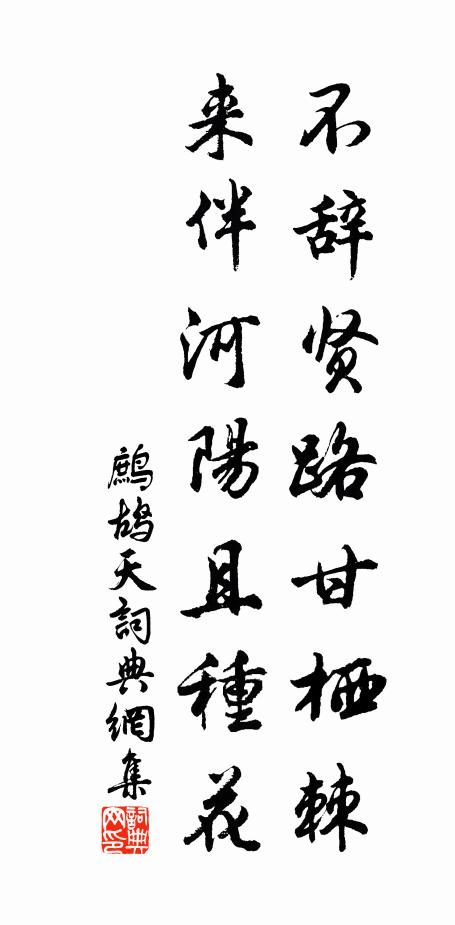 不辞贤路甘栖棘
来伴河陽且種花
鷓鴣天詞典網集
詞典网印